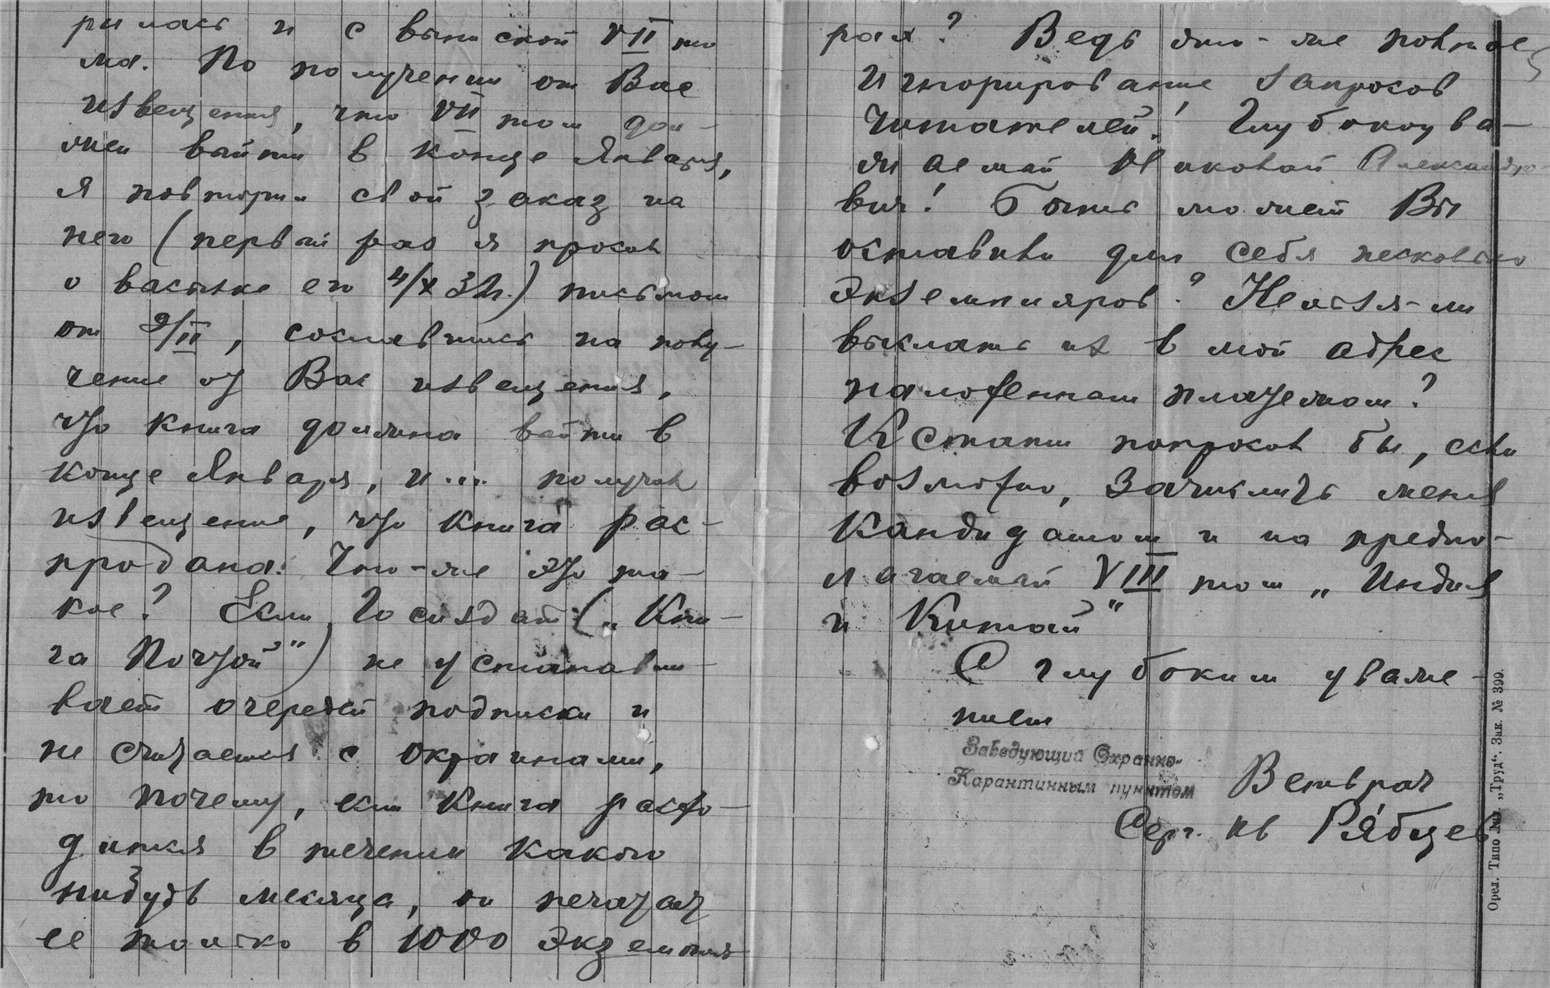 рилась и с выпиской VII то
ма. По получении от Вас
извещения, что VII том дол-
жен выйти в конце Января,
я повторил свой заказ на
него (первый раз я просил
о высылке его 4/X 32г.) письмом
от 9/II, сославшись на полу-
чение от Вас извещения,
что книга должна выйти в
конце Января, и ... получил
извещение, что книга рас-
продана. Что-же это та-
кое? Если Госиздат („Кни-
га Почтой") не устанавли-
вает очередей подписки и
не считается с окраинами,
то почему, если книга расхо-
дится в течении какого
нибудь месяца, он печатает
ее только в 1000 экземпля-
рах? Ведь это-же полное
игнорирование запросов
читателей! Глубокоува-
жаемый Яковлевич Александро-
вич! Быть может Вы
оставили для себя несколько
экземпляров? Нельзя-ли
выслать их в мой адрес
наложенным платежом?
Кстати попросил бы, если
возможно, зачислить меня
кандидатом и на предпо-
лагаемый VIII том „Индия
и Китай"
С глубоким уваже-
нием
Заведующий Охранно-
Карантинным пунктом
Ветврач
Серг. Ив Рябцев
Орел. Типо Лит. „Труд". Зак. № 399.